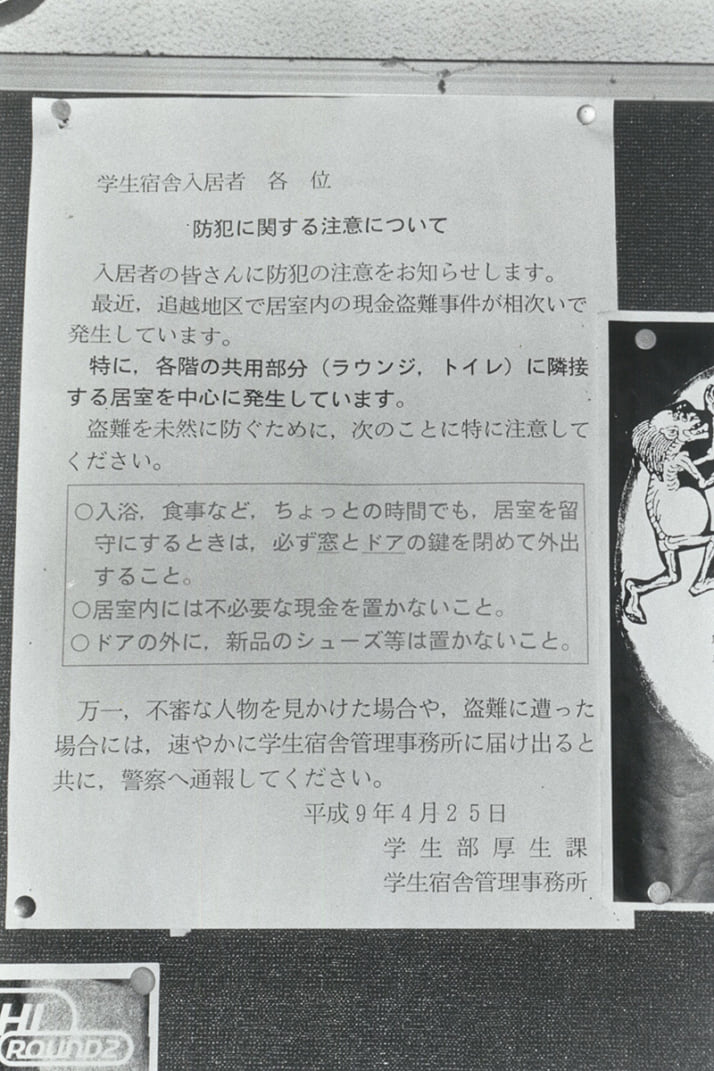 学生宿舎入居者　各　位
防犯に関する注意について
入居者の皆さんに防犯の注意をお知らせします。
最近，追越地区で居室内の現金盗難事件が相次いで
発生しています。
特に，各階の共用部分（ラウンジ，トイレ）に隣接
する居室を中心に発生しています。
盗難を未然に防ぐために，次のことに特に注意して
ください。
○入浴，食事など，ちょっとの時間でも，居室を留
守にするときは，必ず窓とドアの鍵を閉めて外出
すること。
○居室内には不必要な現金を置かないこと。
○ドアの外に，新品のシューズ等は置かないこと。
万一，不審な人物を見かけた場合や，盗難に遭った
場合には，速やかに学生宿舎管理事務所に届け出ると
共に，警察へ通報してください。
平成９年４月２５日
学生部厚生課
学生宿舎管理事務所
HI
ROUND2